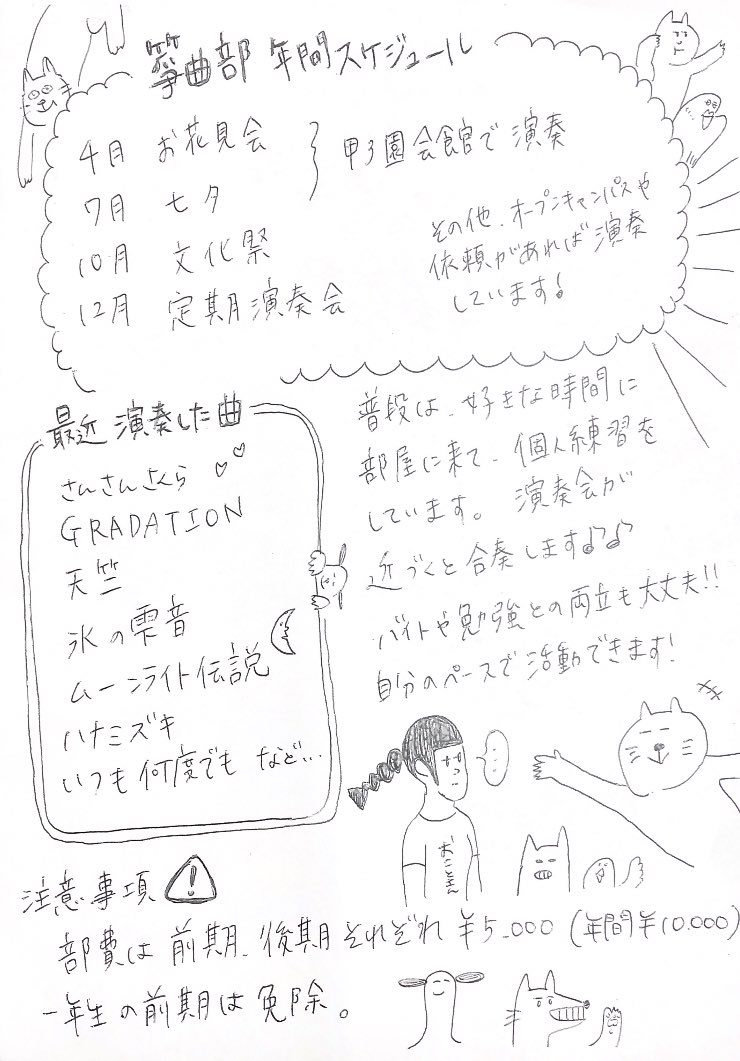 箏曲部 年間スケジュール
4月 お花見会
7月 七夕
甲子園会館で演奏
10月 文化祭
12月 定期演奏会
その他、オープンキャンパスや
依頼があれば演奏
しています♪
最近演奏した曲
さんさんさくら
GRADATION
天竺
氷の雫音
ムーンライト伝説
ハナミズキ
いつも何度でも など…
普段は、好きな時間に
部屋に来て、個人練習を
しています。 演奏会が
近づくと合奏します♪♪
バイトや勉強との両立も大丈夫!!
自分のペースで活動できます!
おことさん
注意事項 !
部費は前期、後期それぞれ¥5,000(年間¥10,000)
一年生の前期は免除。